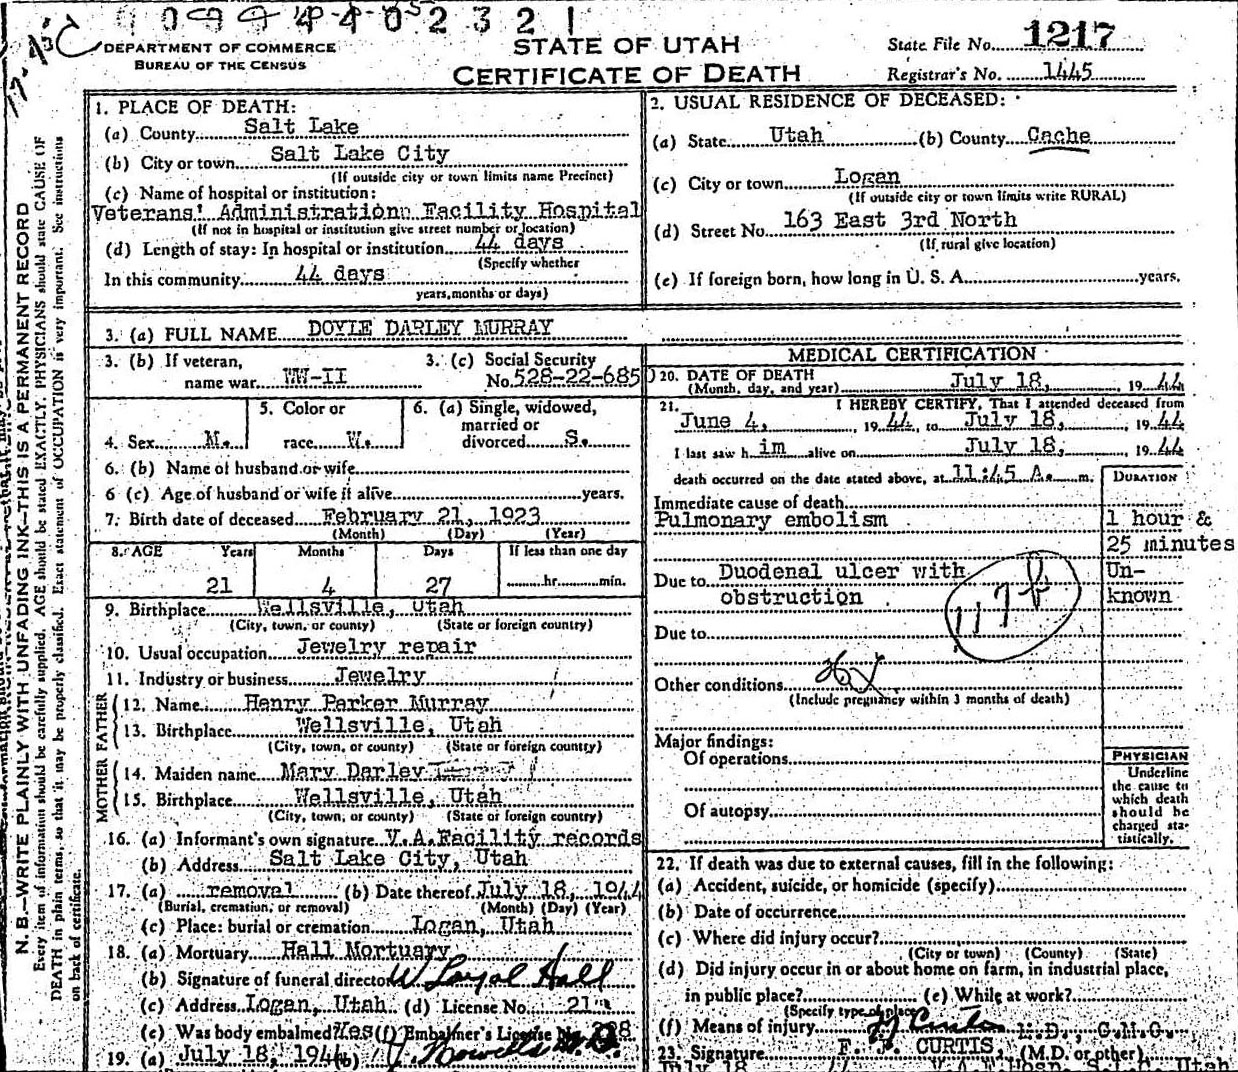 DEPARTMENT OF COMMERCE
BUREAU OF THE CENSUS
STATE OF UTAH
CERTIFICATE OF DEATH
State File No. 1217
Registrar's No. 1445
N. B.—WRITE PLAINLY WITH UNFADING INK—THIS IS A PERMANENT RECORD
Every item of information should be carefully supplied. AGE should be stated EXACTLY. PHYSICIANS should state CAUSE OF
DEATH in plain terms, so that it may be properly classified. Exact statement of OCCUPATION is very important. See instructions
on back of certificate.
1. PLACE OF DEATH:
(a) County Salt Lake
(b) City or town Salt Lake City
(If outside city or town limits name Precinct)
(c) Name of hospital or institution:
Veterans' Administration Facility Hospital
(If not in hospital or institution give street number or location)
(d) Length of stay: In hospital or institution 44 days
(Specify whether
In this community 44 days
years, months or days)
2. USUAL RESIDENCE OF DECEASED:
(a) State Utah (b) County Cache
(c) City or town Logan
(If outside city or town limits write RURAL)
(d) Street No. 163 East 3rd North
(If rural give location)
(e) If foreign born, how long in U. S. A. years.
3. (a) FULL NAME DOYLE DARLEY MURRAY
3. (b) If veteran, name war WW-II
3. (c) Social Security No. 528-22-685
4. Sex M.
5. Color or race W.
6. (a) Single, widowed, married or divorced S.
6. (b) Name of husband or wife
6 (c) Age of husband or wife if alive years.
7. Birth date of deceased February 21, 1923
(Month) (Day) (Year)
8. AGE Years Months Days If less than one day
21 4 27 hr. min.
9. Birthplace Wellsville, Utah
(City, town, or county) (State or foreign country)
10. Usual occupation Jewelry repair
11. Industry or business Jewelry
FATHER
12. Name Henry Parker Murray
13. Birthplace Wellsville, Utah
(City, town, or county) (State or foreign country)
MOTHER
14. Maiden name Mary Darley
15. Birthplace Wellsville, Utah
(City, town, or county) (State or foreign country)
16. (a) Informant's own signature V.A.Facility records
(b) Address Salt Lake City, Utah
17. (a) removal (b) Date thereof July 18, 1944
(Burial, cremation, or removal) (Month) (Day) (Year)
(c) Place: burial or cremation Logan, Utah
18. (a) Mortuary Hall Mortuary
(b) Signature of funeral director W Loyal Hall
(c) Address Logan, Utah (d) License No. 21
(e) Was body embalmed? Yes (f) Embalmer's License No.
19. (a) July 18, 1944 (b)
MEDICAL CERTIFICATION
20. DATE OF DEATH
(Month, day, and year) July 18, 1944
21. I HEREBY CERTIFY, That I attended deceased from
June 4, 1944, to July 18, 1944
I last saw h im alive on July 18, 1944
death occurred on the date stated above, at 11:45 A. m.
DURATION
Immediate cause of death
Pulmonary embolism 1 hour &
25 minutes
Due to Duodenal ulcer with Un-
obstruction known
117b
Due to
Other conditions
(Include pregnancy within 3 months of death)
Major findings:
Of operations
Of autopsy
PHYSICIAN
Underline
the cause to
which death
should be
charged sta-
tistically.
22. If death was due to external causes, fill in the following:
(a) Accident, suicide, or homicide (specify)
(b) Date of occurrence
(c) Where did injury occur?
(City or town) (County) (State)
(d) Did injury occur in or about home on farm, in industrial place,
in public place? (e) While at work?
(Specify type of place)
(f) Means of injury M.D., C.M.O.
23. Signature F. J. CURTIS, (M.D. or other)
July 18